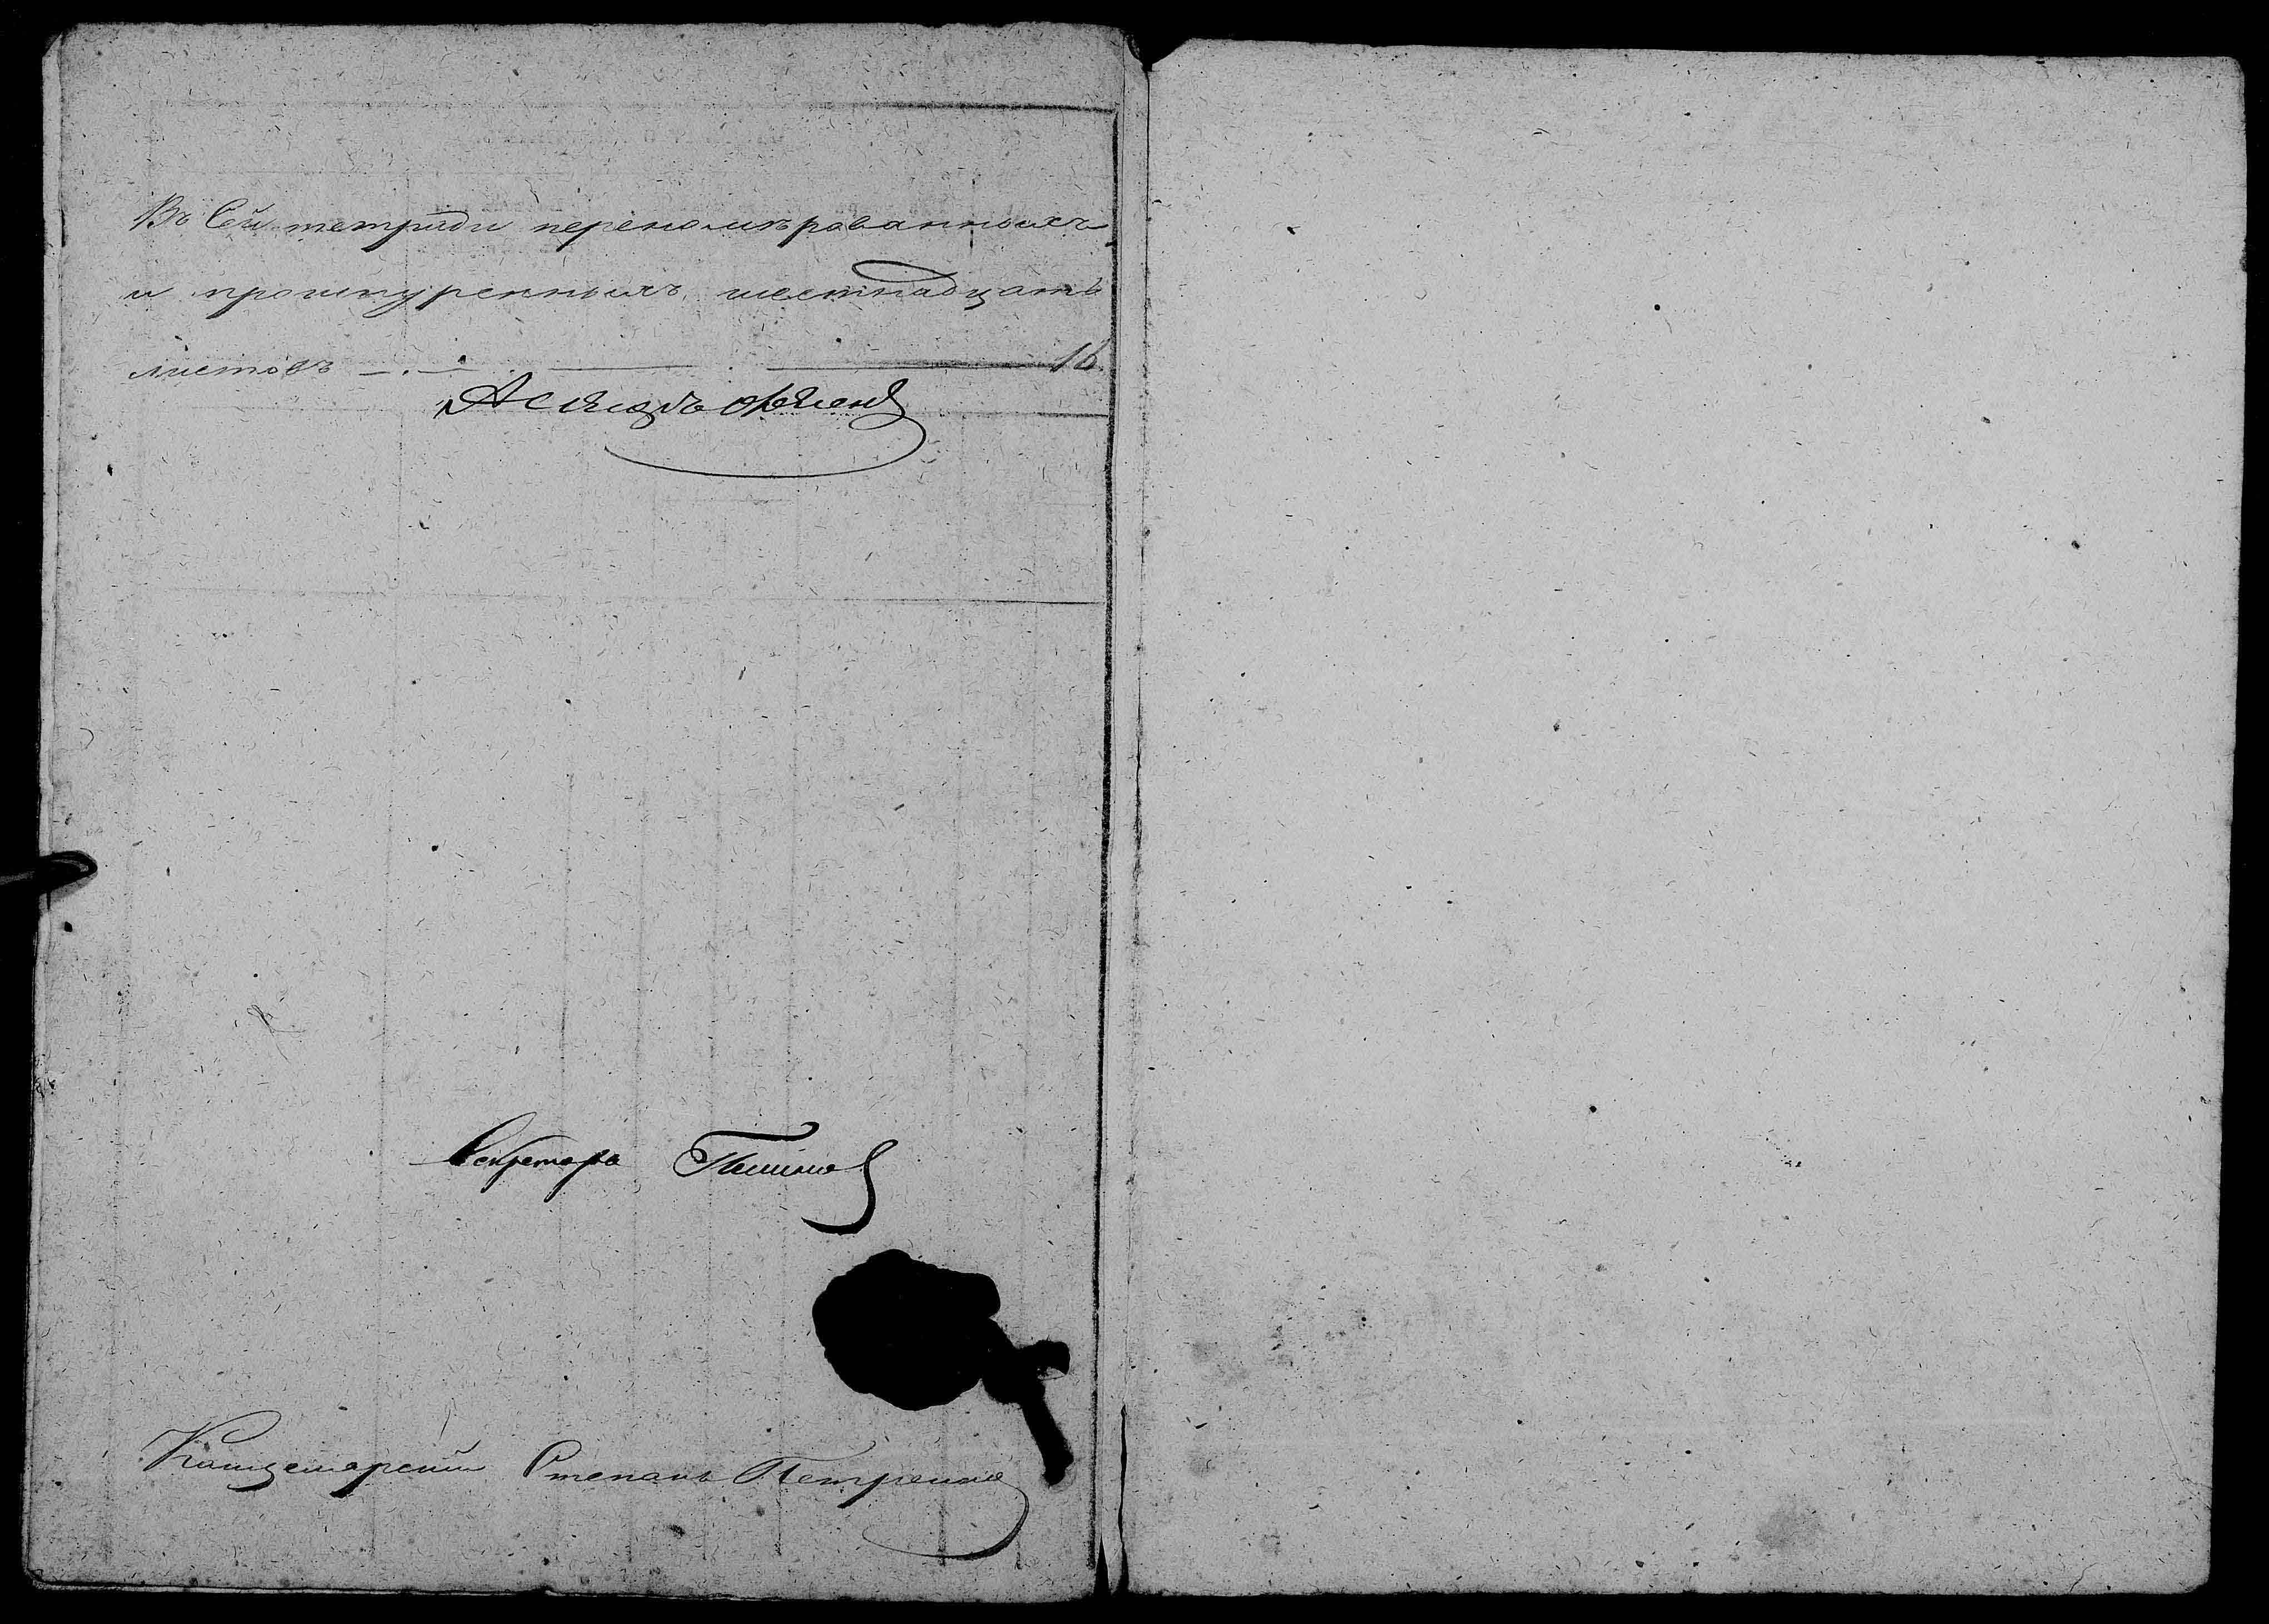 Въ сей тетради переномѣрованныхъ
и прошнуренныхъ шестнадцать
листовъ 16
Секретарь
Канцелярскій Степанъ Петренко